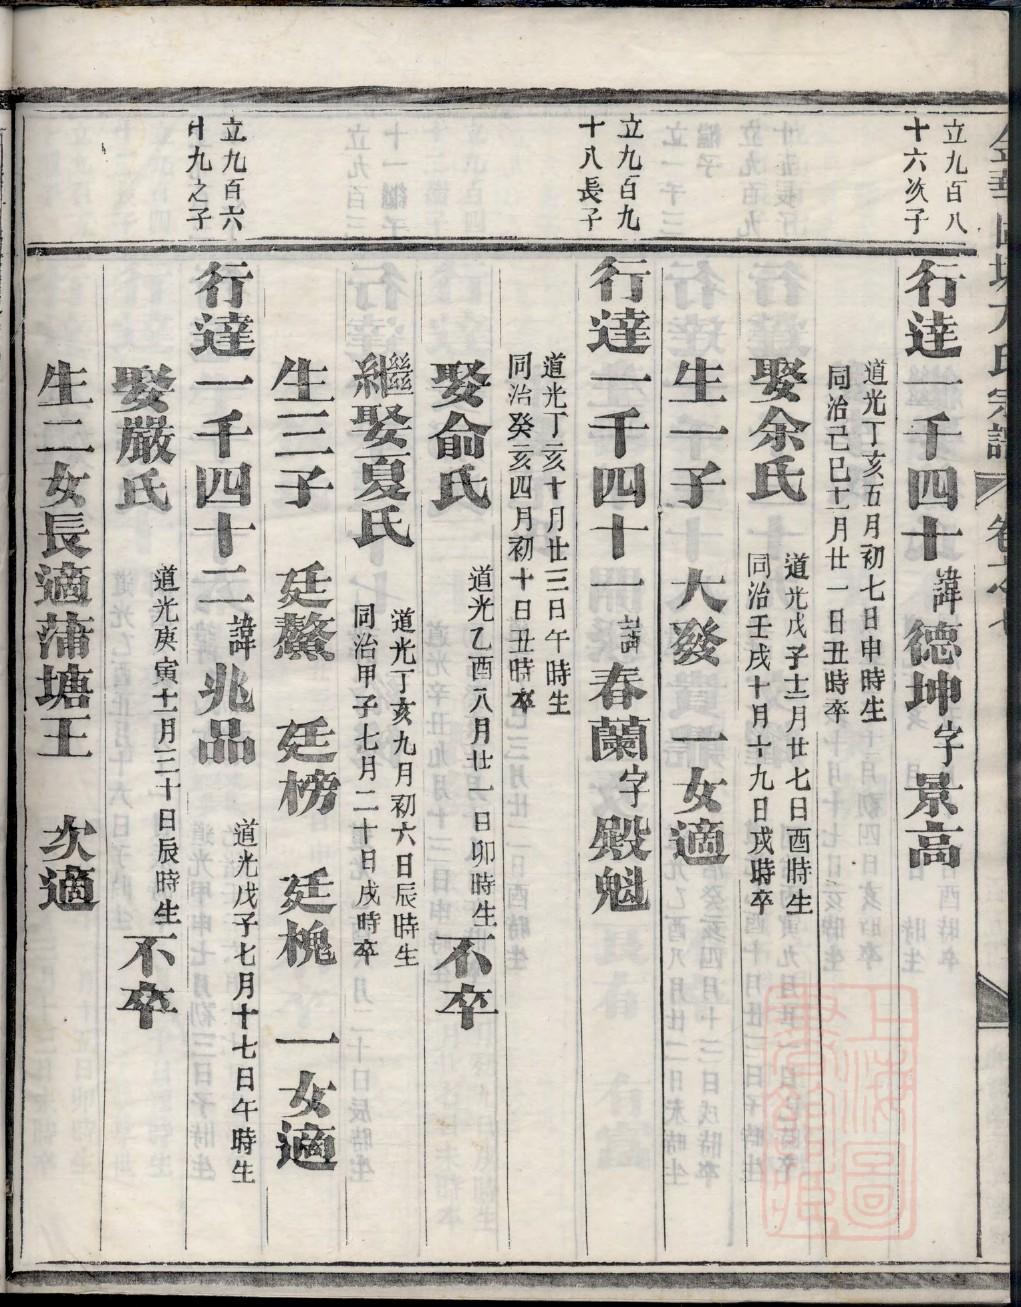 立九百八
十六次子
行達一千四十諱德坤字景高
道光丁亥五月初七日申時生
同治己巳十月廿一日丑時卒
娶余氏
道光戊子十二月廿七日酉時生
同治壬戌十月十九日戌時卒
生一子 大發 一女適
立九百九
十八長子
行達一千四十一諱春蘭字殿魁
道光丁亥十月廿三日午時生
同治癸亥四月初十日丑時卒
娶俞氏
道光乙酉八月廿一日卯時生
不卒
繼娶夏氏
道光丁亥九月初六日辰時生
同治甲子七月二十日戌時卒
生三子 廷鰲 廷榜 廷槐 一女適
立九百六
十九之子
行達一千四十二諱兆品
道光戊子七月十七日午時生
娶嚴氏
道光庚寅十一月三十日辰時生
不卒
生二女長適蒲塘王 次適